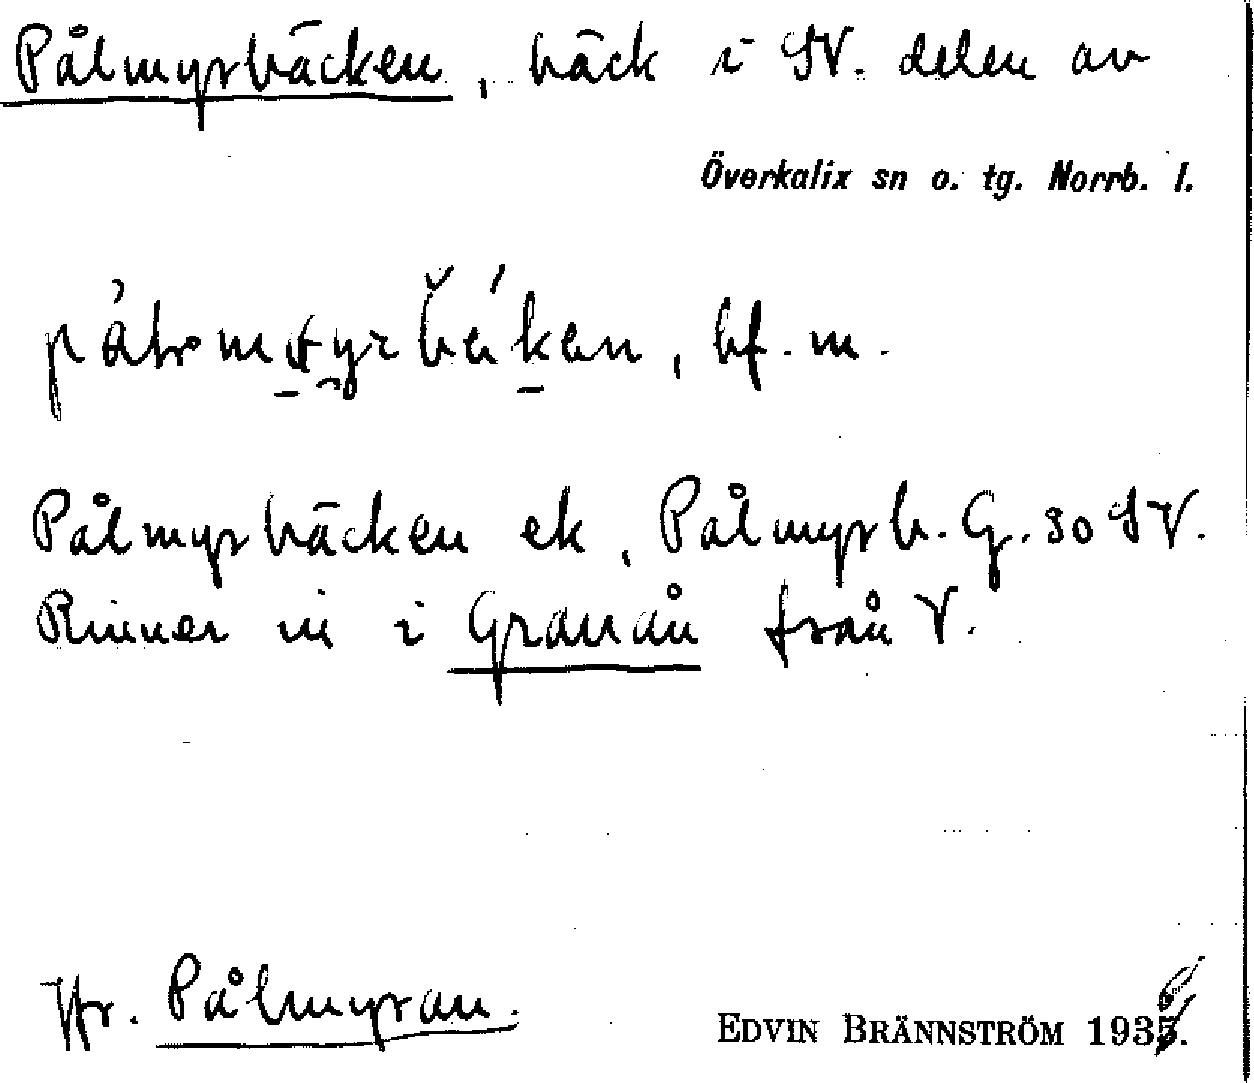 Pålmyrbäcken, bäck i SV. delen av
Överkalix sn o. tg. Norrb. l.
bf. m.
Pålmyrbäcken ek, Pålmyrb. G. 80 SV.
Rinner in i Granån från V.
Jfr. Pålmyran.
EDVIN BRÄNNSTRÖM 1936.